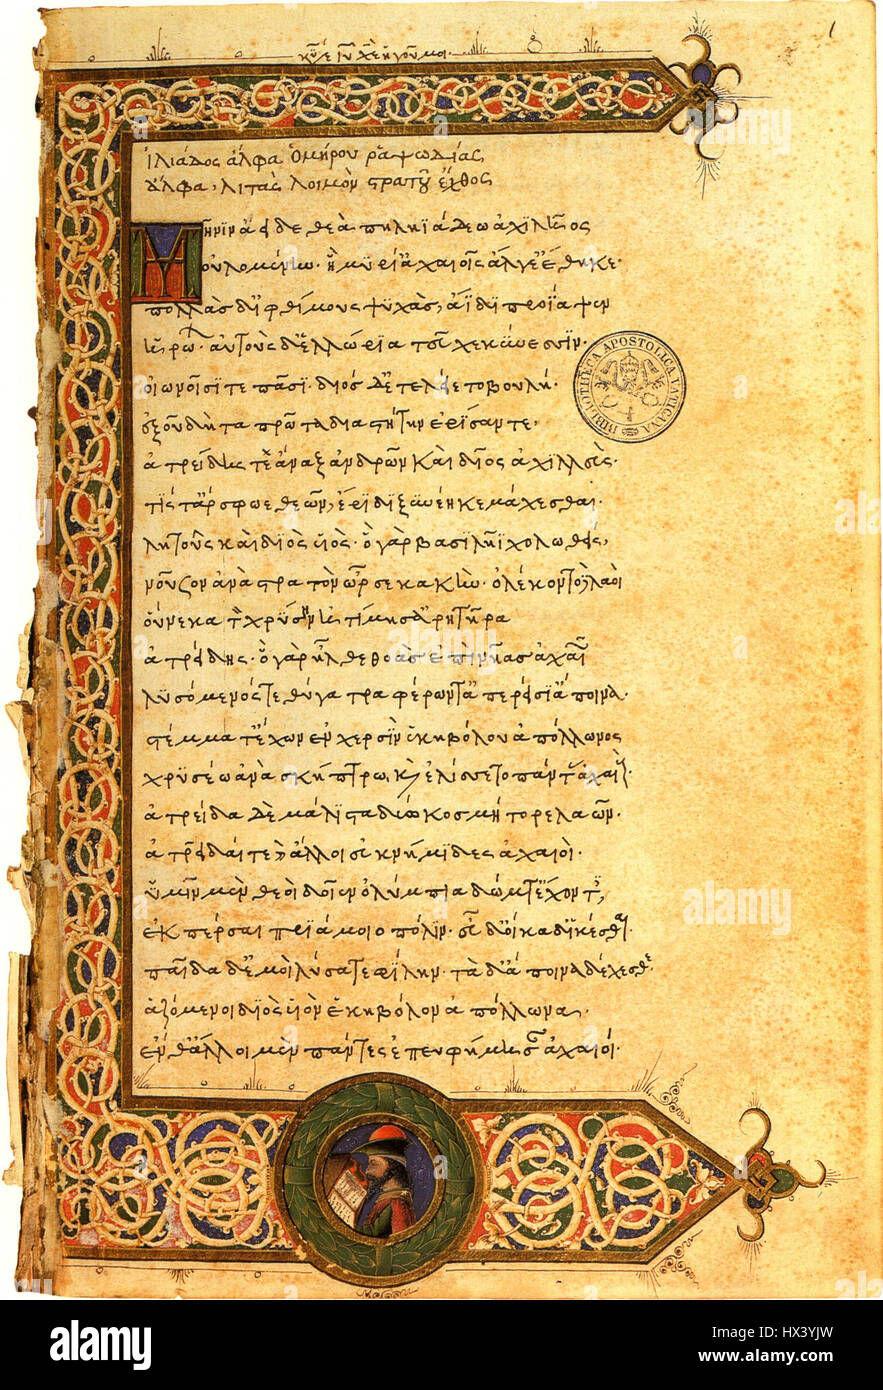 κε ιυ χε ἡγοῦ μοι
1
Ἰλιάδος ἄλφα Ὁμήρου ῥαψωδίας,
Ἄλφα, λιτὰς λοιμὸν στρατοῦ ἔχθος
Μῆνιν ἄειδε θεὰ πηληϊάδεω ἀχιλῆος
οὐλομένην· ἣ μυρί' ἀχαιοῖς ἄλγε' ἔθηκε·
πολλὰς δ' ἰφθίμους ψυχὰς, ἄϊδι προΐαψεν
ἡρώων· αὐτοὺς δ' ἑλλώρια τεῦχε κύνεσσιν·
οἰωνοῖσί τε πᾶσι· διὸς δ' ἐτελείετο βουλή·
ἐξ οὗ δὴ τὰ πρῶτα διαστήτην ἐρίσαντε,
ἀτρείδης τε ἄναξ ἀνδρῶν καὶ δῖος ἀχιλλεύς·
τίς τ' ἄρ σφωε θεῶν, ἔριδι ξυνέηκε μάχεσθαι·
λητοῦς καὶ διὸς υἱός· ὁ γὰρ βασιλῆϊ χολωθείς,
νοῦσον ἀνὰ στρατὸν ὦρσε κακήν· ὀλέκοντο δὲ λαοί
οὕνεκα τὸν χρύσην ἠτίμησ' ἀρητῆρα
ἀτρείδης· ὁ γὰρ ἦλθε θοὰς ἐπὶ νῆας ἀχαιῶν
λυσόμενός τε θύγατρα φέρων τ' ἀπερείσι' ἄποινα·
στέμματ' ἔχων ἐν χερσὶν ἑκηβόλου ἀπόλλωνος
χρυσέω ἀνὰ σκήπτρω, καὶ ἐλίσσετο πάντας ἀχαιούς·
ἀτρείδα δὲ μάλιστα δύω κοσμήτορε λαῶν·
ἀτρεῖδαί τε καὶ ἄλλοι ἐϋκνήμιδες ἀχαιοὶ·
ὑμῖν μὲν θεοὶ δοῖεν ὀλύμπια δώματ' ἔχοντες,
ἐκπέρσαι πριάμοιο πόλιν· εὖ δ' οἴκαδ' ἱκέσθαι·
παῖδα δ' ἐμοὶ λύσατε φίλην· τὰ δ' ἄποινα δέχεσθε·
ἁζόμενοι διὸς υἱὸν ἑκηβόλον ἀπόλλωνα·
ἔνθ' ἄλλοι μὲν πάντες ἐπευφήμησαν ἀχαιοί·
BIBLIOTHECA APOSTOLICA VATICANA
alamy
Image ID: HX3YJW
www.alamy.com